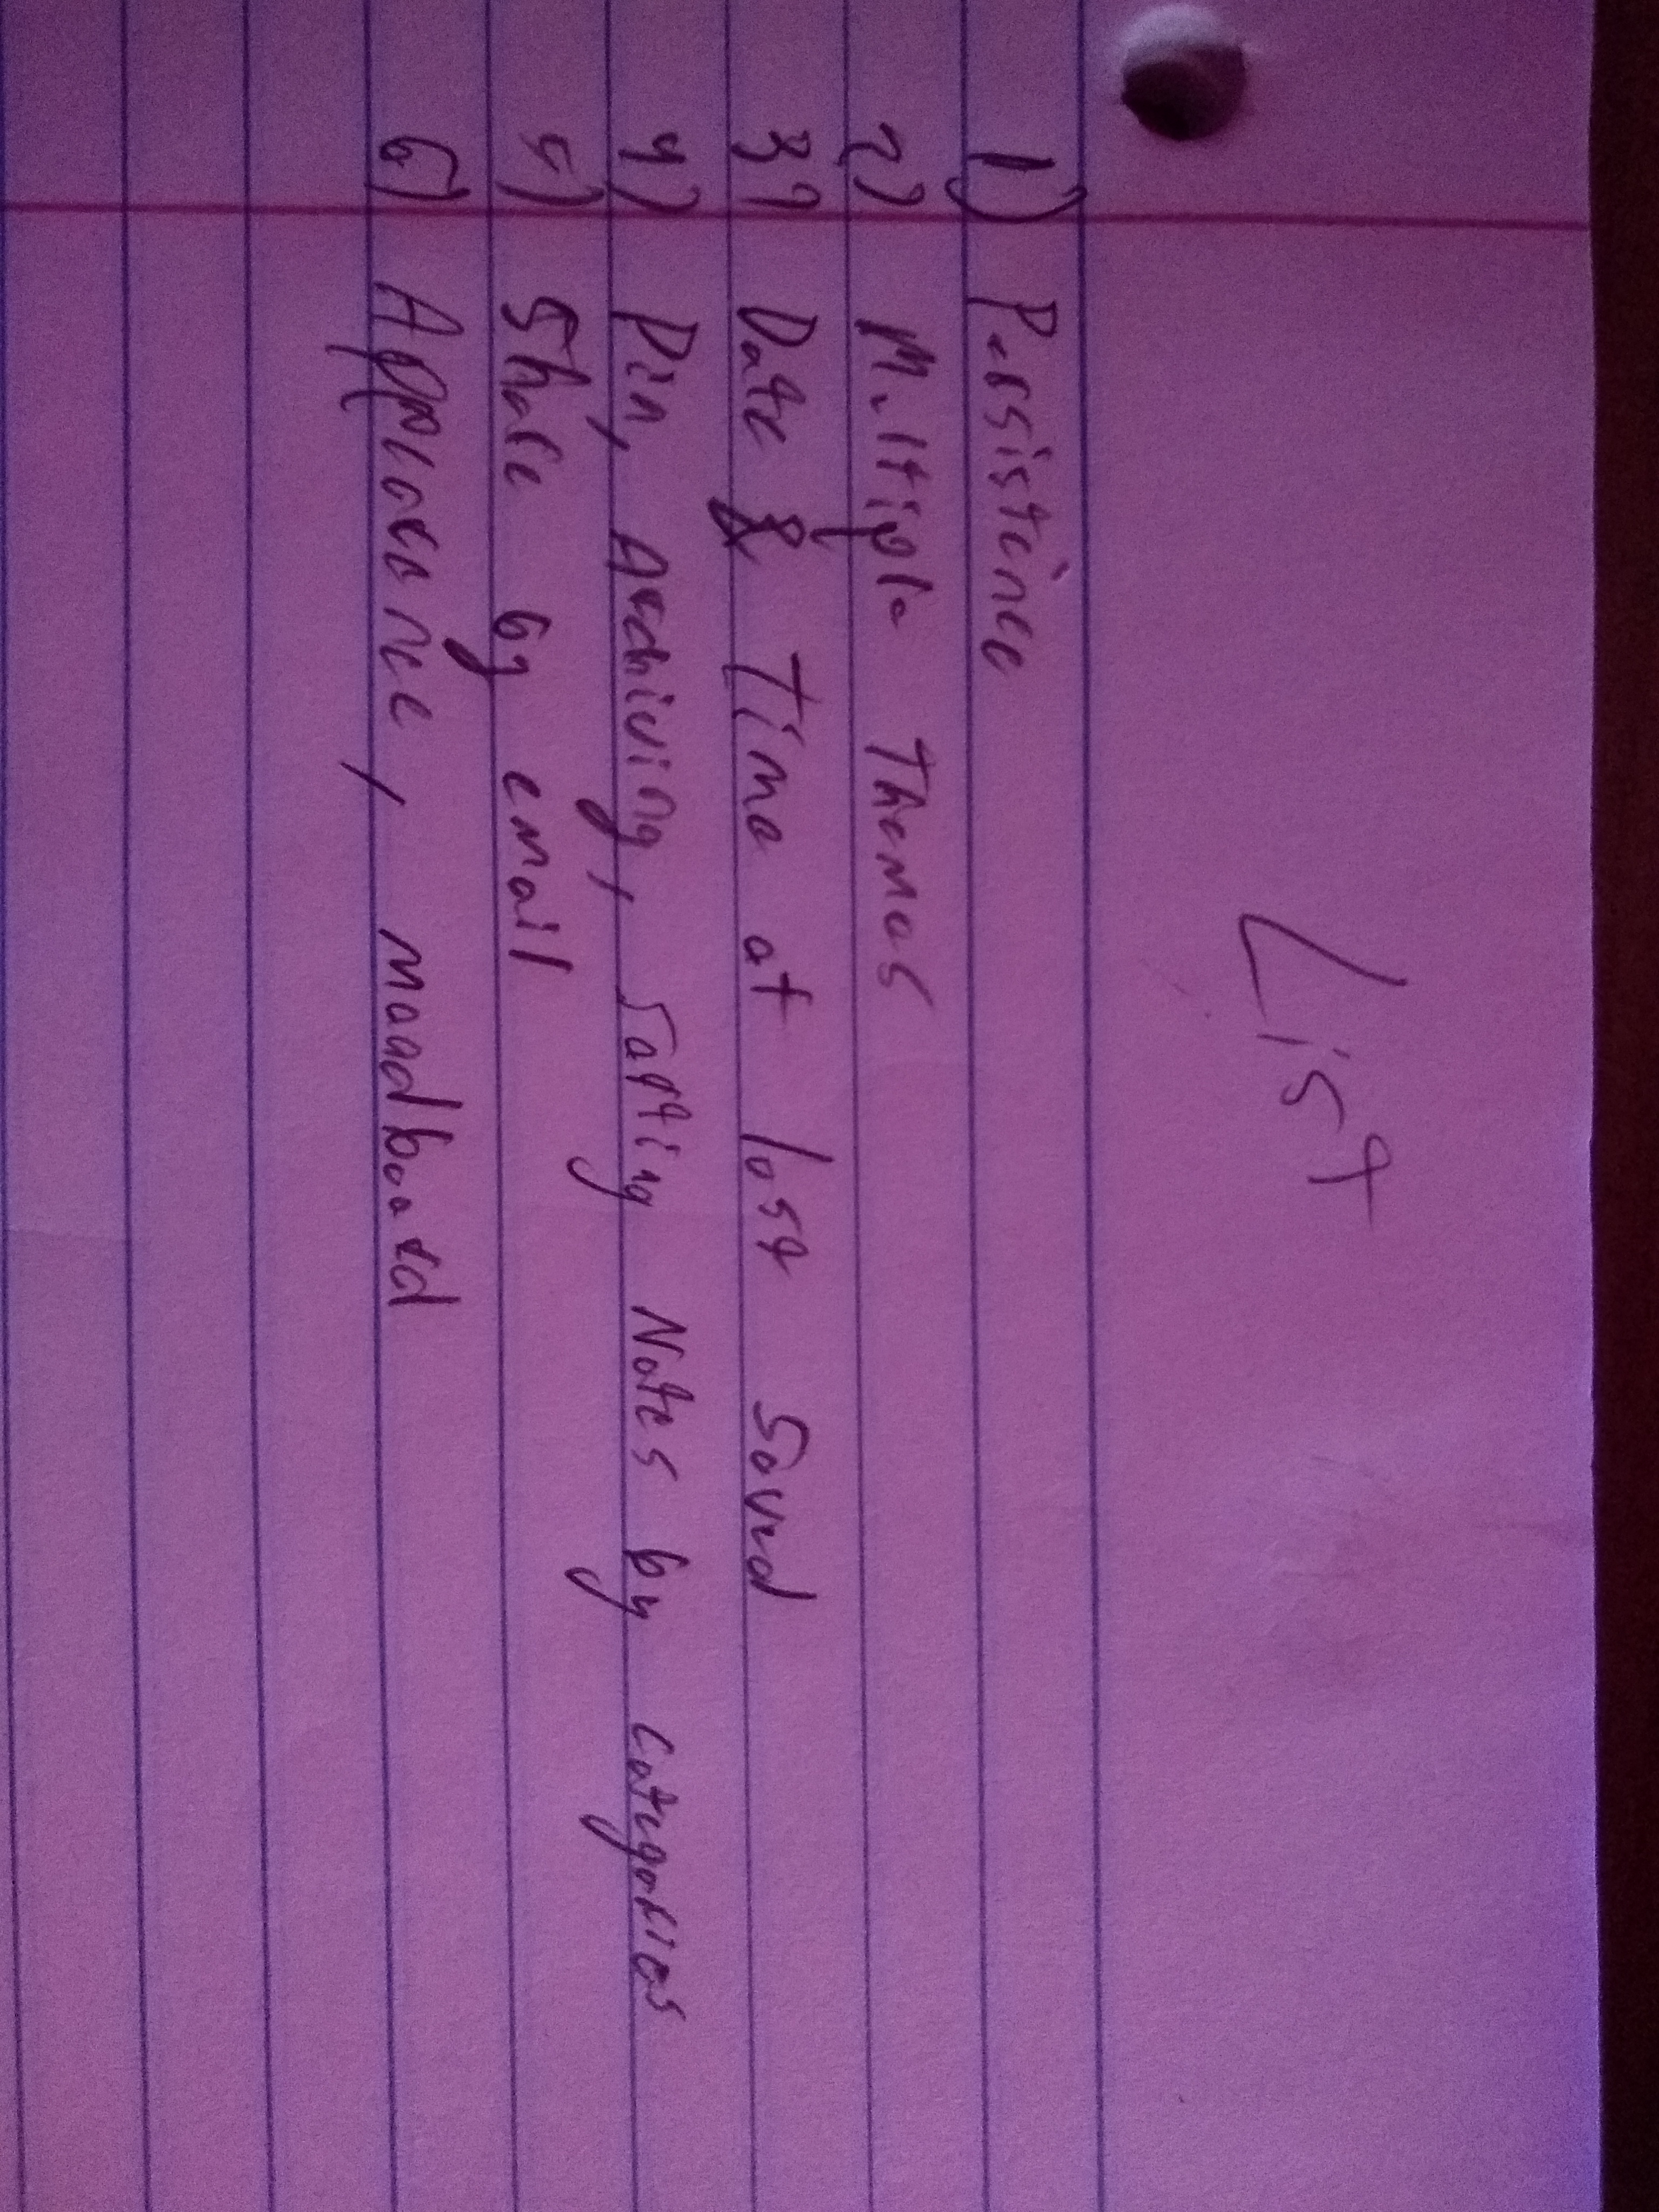 List
1) Persistence
2) Multiple Themes
3) Date & Time at last saved
4) Pin, Archiving, Sorting Notes by categories
5) Share by email
6) Appearance, moodboard